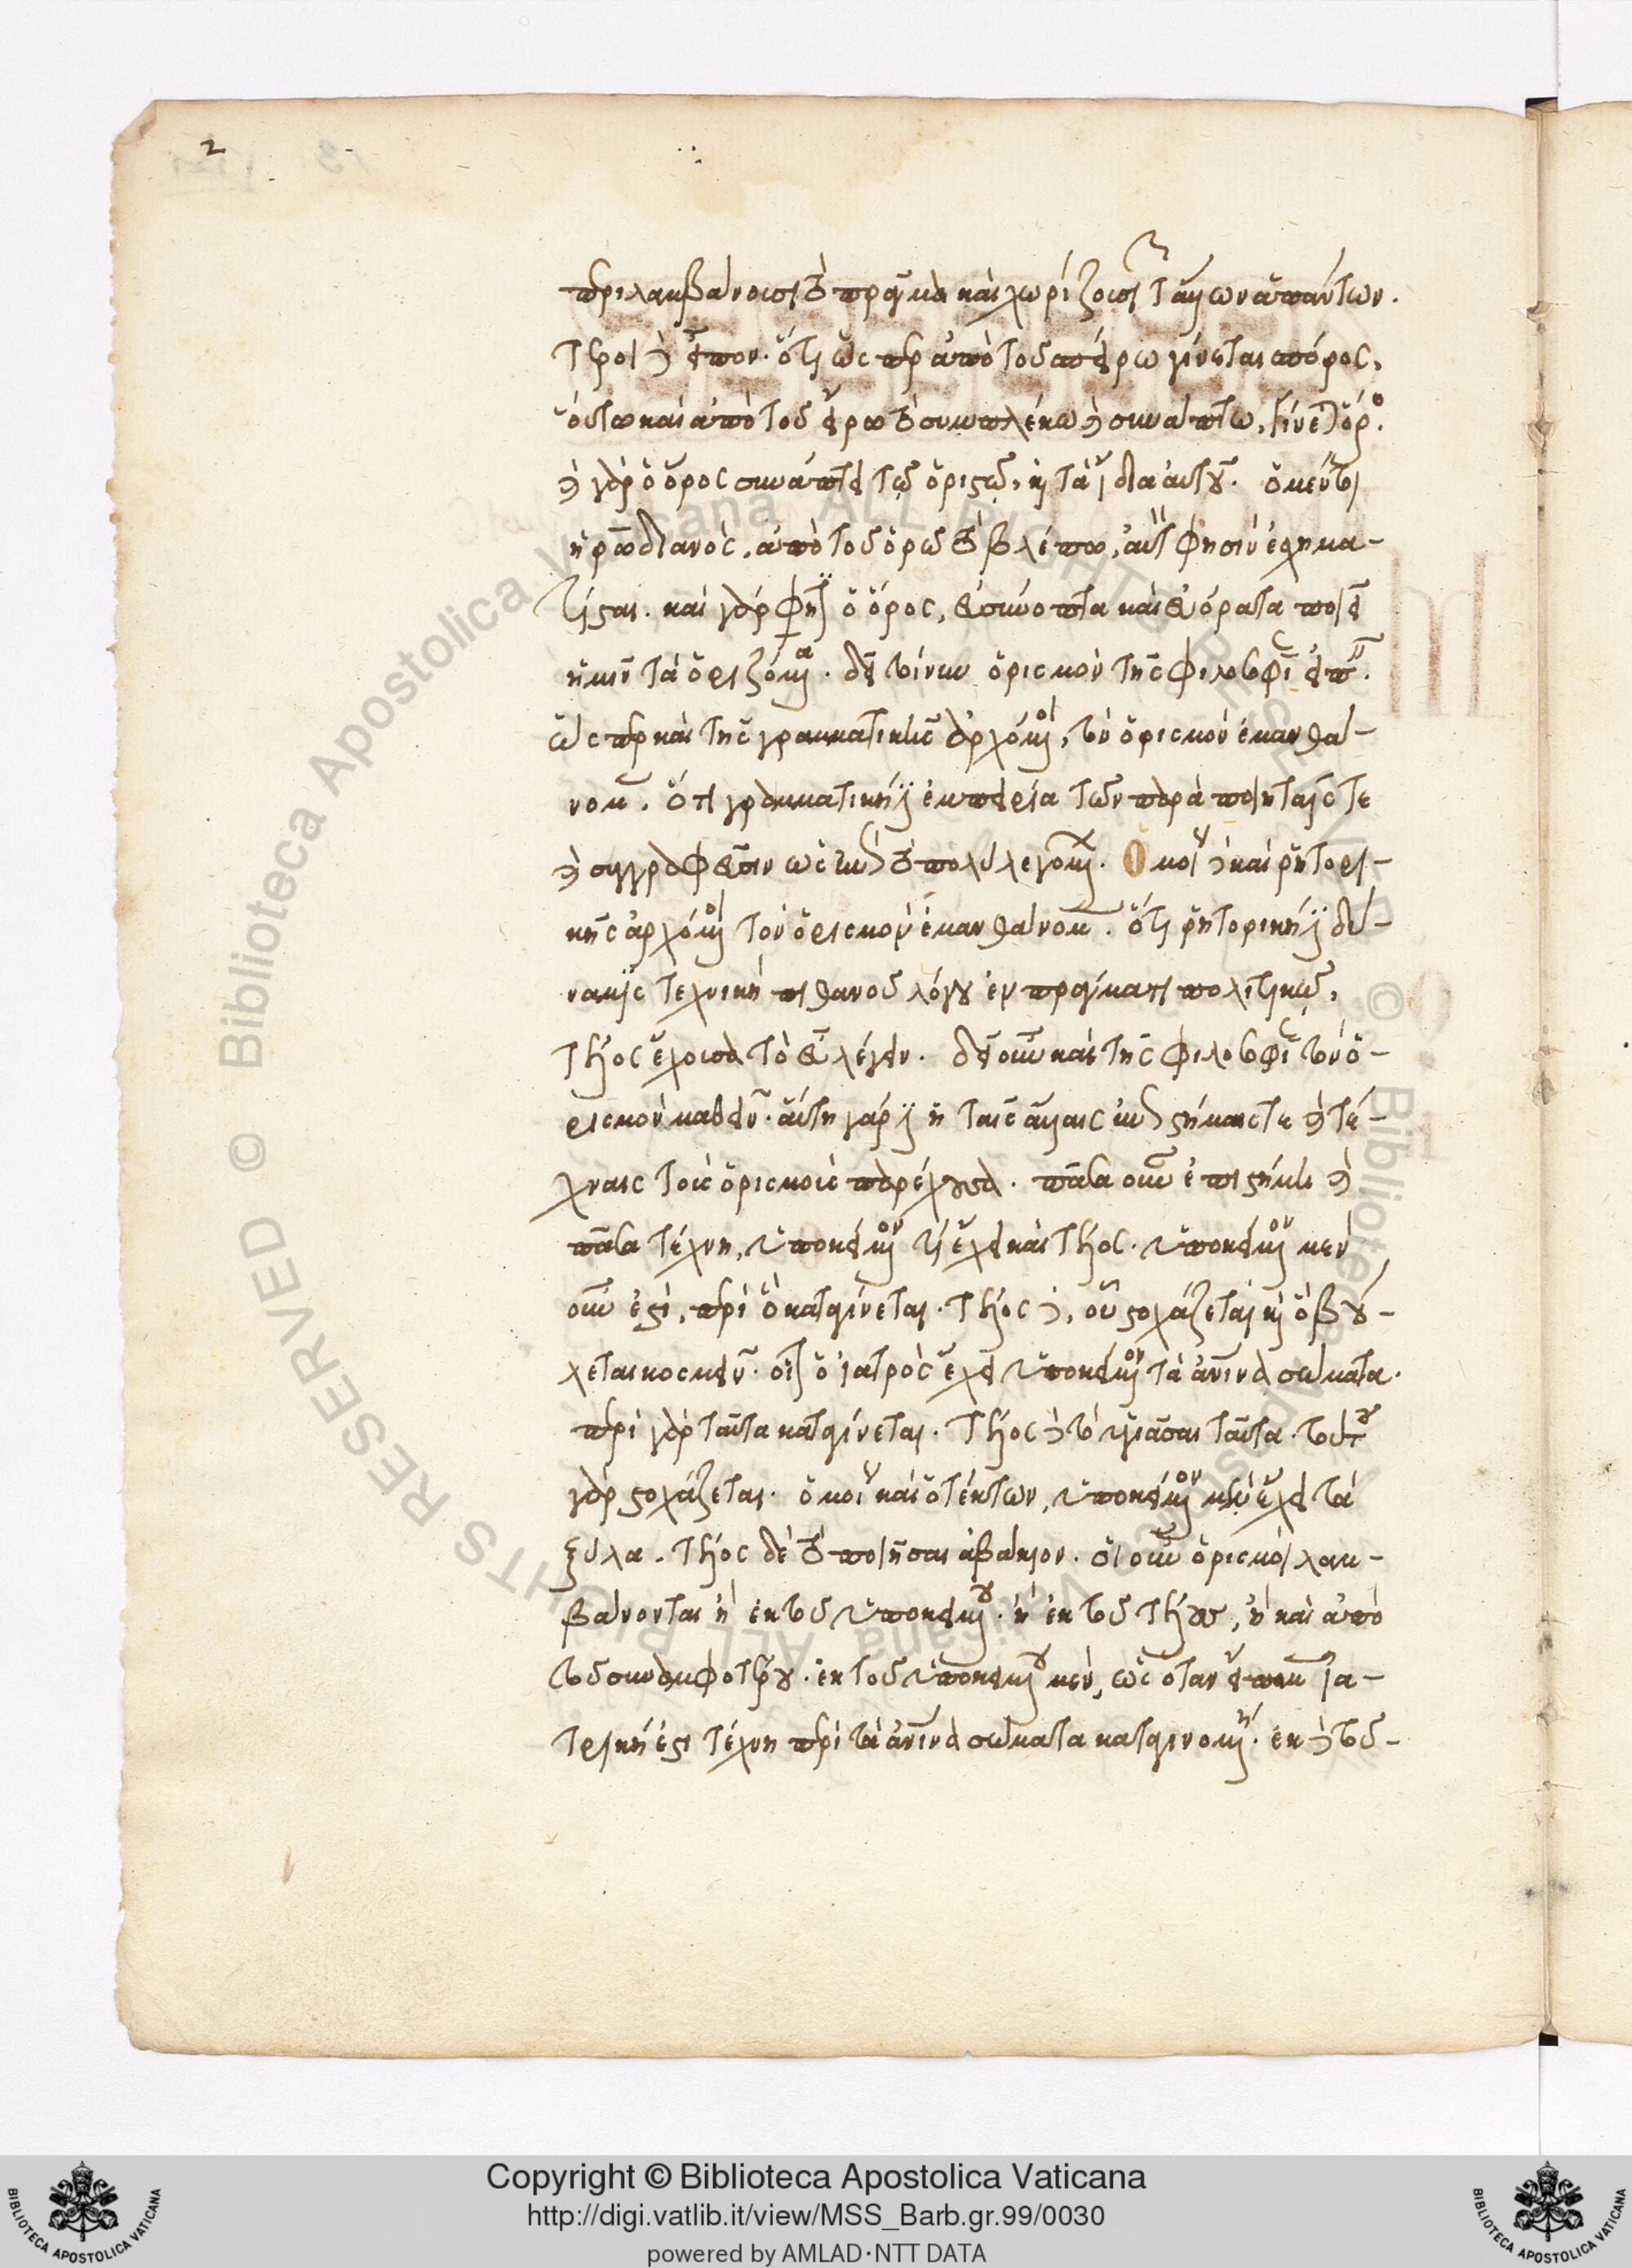 2
περιλαμβάνουσι τὸ πρᾶγμα καὶ χωρίζουσι τῶν ἄλλων ἁπάντων.
ἕτεροι δὲ εἶπον. ὅτι ὥσπερ ἀπὸ τοῦ σπείρω γίνεται σπόρος,
οὕτω καὶ ἀπὸ τοῦ εἴρω τὸ συμπλέκω καὶ συνάπτω, γίνεται ὅρος.
καὶ γὰρ ὁ ὅρος συνάπτει τῷ ὁριστῷ, τὰ ἴδια αὐτοῦ. ὁ μέντοι
ἡρωδιανὸς, ἀπὸ τοῦ ὁρῶ τὸ βλέπω, αὐτό φησιν ἐσχημα-
τίσθαι. καὶ γάρ φησι ὁ ὅρος, εὐσύνοπτα καὶ εὐόρατα ποιεῖ
ἡμῖν τὰ ὁριζόμενα. δεῖ τοίνυν ὁρισμὸν τῆς φιλοσοφίας εἰπεῖν.
ὥσπερ καὶ τῆς γραμματικῆς ἀρχόμενοι, τὸν ὁρισμὸν ἐμανθά-
νομεν. ὅτι γραμματική ἐστιν ἐμπειρία τῶν παρὰ ποιηταῖς τε
καὶ συγγραφεῦσιν ὡς ἐπὶ τὸ πολὺ λεγομένων. Ὁμοίως δὲ καὶ ῥητορι-
κῆς ἀρχόμενοι τὸν ὁρισμὸν ἐμανθάνομεν. ὅτι ῥητορική ἐστι δύ-
ναμις τεχνικὴ πιθανοῦ λόγου ἐν πράγματι πολιτικῷ,
τέλος ἔχουσα τὸ εὖ λέγειν. δεῖ οὖν καὶ τῆς φιλοσοφίας τὸν ὁ-
ρισμὸν μαθεῖν. αὕτη γάρ ἐστιν ἡ ταῖς ἄλλαις ἐπιστήμαις τε καὶ τέ-
χναις τοὺς ὁρισμοὺς παρέχουσα. πᾶσα οὖν ἐπιστήμη καὶ
πᾶσα τέχνη, ὑποκείμενόν τι ἔχει καὶ τέλος. ὑποκείμενον μὲν
οὖν ἐστὶ, περὶ ὃ καταγίνεται. τέλος δὲ, οὗ στοχάζεται καὶ ὃ βού-
λεται κοσμεῖν. οἷον ὁ ἰατρὸς ἔχει ὑποκείμενον τὰ ἀνθρώπινα σώματα.
περὶ γὰρ ταῦτα καταγίνεται. τέλος δὲ τὸ ὑγιᾶσαι ταῦτα. τούτου
γὰρ στοχάζεται. ὁμοίως καὶ ὁ τέκτων, ὑποκείμενον μὲν ἔχει τὰ
ξύλα. τέλος δὲ τὸ ποιῆσαι ἀβάκιον. οἱ οὖν ὁρισμοὶ λαμ-
βάνονται ἢ ἐκ τοῦ ὑποκειμένου. ἢ ἐκ τοῦ τέλους, ἢ καὶ ἀπὸ
τοῦ συναμφοτέρου. ἐκ τοῦ ὑποκειμένου μὲν, ὡς ὅταν εἴπωμεν ἰα-
τρική ἐστι τέχνη περὶ τὰ ἀνθρώπινα σώματα καταγινομένη. ἐκ δὲ τοῦ-
Copyright © Biblioteca Apostolica Vaticana
http://digi.vatlib.it/view/MSS_Barb.gr.99/0030
powered by AMLAD·NTT DATA
BIBLIOTECA APOSTOLICA VATICANA
BIBLIOTECA APOSTOLICA VATICANA
© Biblioteca Apostolica Vaticana ALL RIGHTS RESERVED